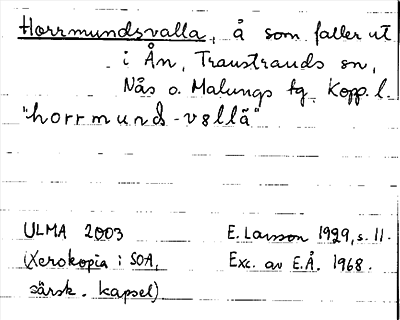 Horrmundsvalla, å som faller ut
i Ån, Transtrands sn,
Nås o. Malungs tg. Kopp. l.
"horrmund-vallä"
ULMA 2003 E. Larsson 1929, s. 11.
(Xerokopia i SOA, Exc. av E.Å. 1968.
särsk. kapsel)